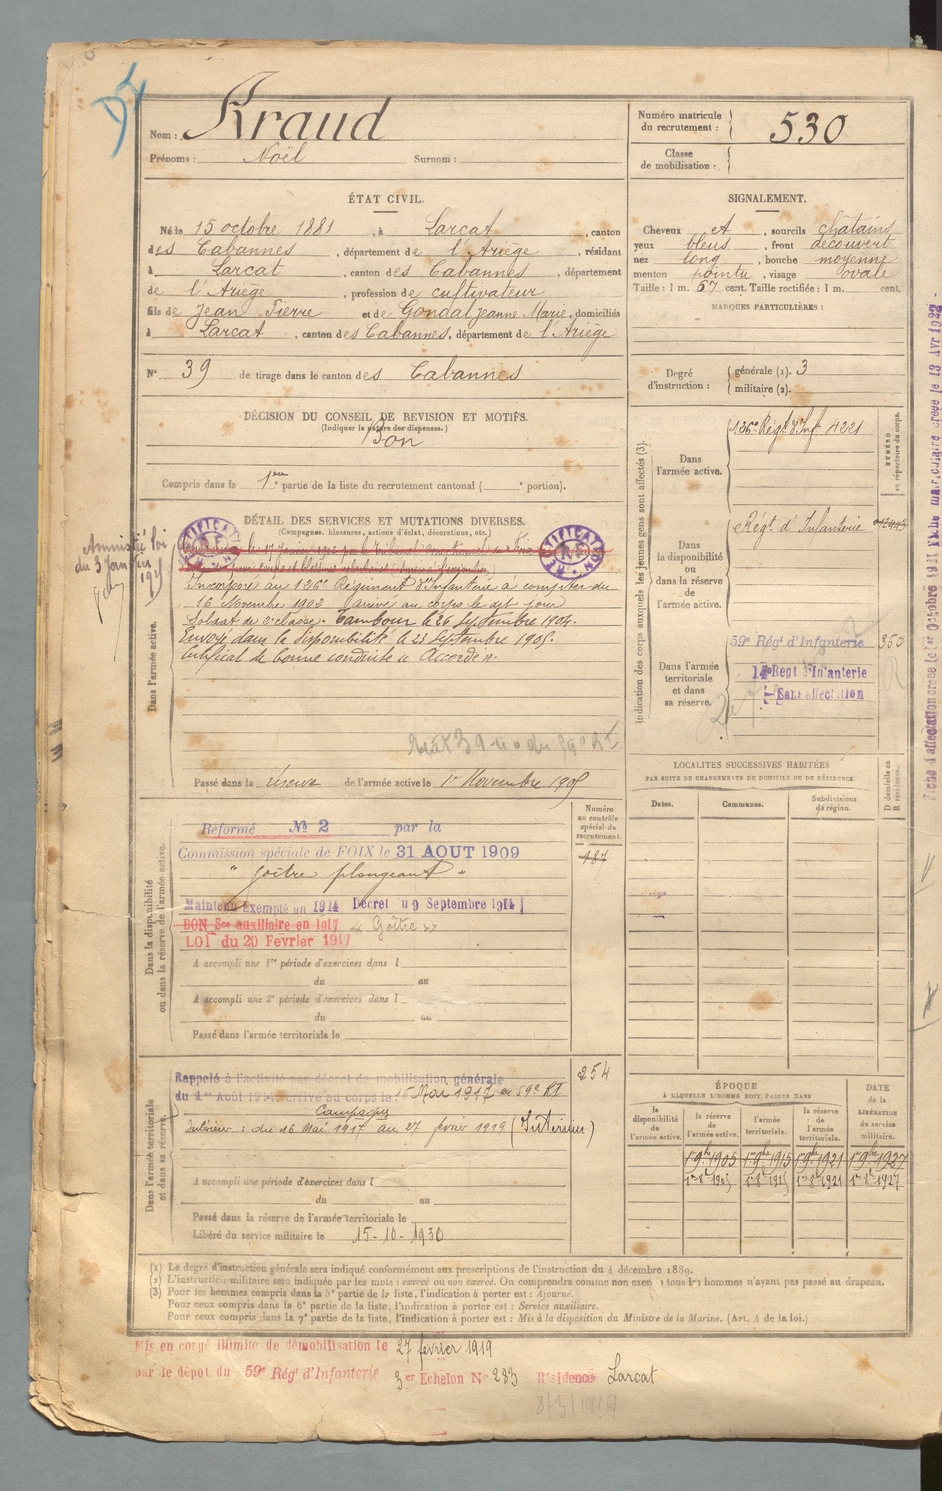 Nom : Kraud
Prénoms : Noël Surnom :
Numéro matricule du recrutement : 530
Classe de mobilisation :
ÉTAT CIVIL.
Né le 15 octobre 1881, à Larcat, canton
des Cabannes, département de l'Ariège, résidant
à Larcat, canton des Cabannes, département
de l'Ariège, profession de cultivateur
fils de Jean Pierre et de Gondal Jeanne Marie, domiciliés
à Larcat, canton des Cabannes, département de l'Ariège
N° 39 de tirage dans le canton des Cabannes
SIGNALEMENT.
Cheveux et, sourcils châtains
yeux bleus, front découvert
nez long, bouche moyenne
menton pointu, visage ovale
Taille : 1 m. 67 cent. Taille rectifiée : 1 m. cent.
MARQUES PARTICULIÈRES :
Degré d'instruction : générale (1). 3
militaire (2).
DÉCISION DU CONSEIL DE REVISION ET MOTIFS.
(Indiquer la nature des dispenses.)
Bon
Compris dans la 1ère partie de la liste du recrutement cantonal ( e portion).
DÉTAIL DES SERVICES ET MUTATIONS DIVERSES.
(Campagnes, blessures, actions d'éclat, décorations, etc.)
Amnistie loi
du 3 Janvier
1925
Dans l'armée active.
Incorporé au 126e Régiment d'Infanterie à compter du
16 Novembre 1902 arrivé au corps le dit jour
Soldat de 2e classe. Tambour le 26 Septembre 1904.
Envoyé dans la disponibilité le 23 Septembre 1905.
Certificat de bonne conduite « Accordé ».
Passé dans la réserve de l'armée active le 1er Novembre 1905
Indication des corps auxquels les jeunes gens sont affectés (3).
NUMÉRO au répertoire du corps.
Dans l'armée active.
126e Régt d'Inf. 4221
Dans la disponibilité ou dans la réserve de l'armée active.
Régt d'Infanterie
Dans l'armée territoriale et dans sa réserve.
59e Régt d'Infanterie 350
14e Regt d'Infanterie
Sans affectation
Fiche d'affectation créée le 1er Octobre 1921 Fiche matriculaire créée le 13 Avr 1922
Dans la disponibilité ou dans la réserve de l'armée active.
Numéro au contrôle spécial du recrutement.
187
Reformé No 2 par la
Commission spéciale de FOIX le 31 AOUT 1909
" Goitre plongeant "
Maintenu Exempté en 1914 Décret du 9 Septembre 1914
BON Sce auxiliaire en 1917 « Goître »
LOI du 20 Février 1917
A accompli une 1re période d'exercices dans l
du au
A accompli une 2e période d'exercices dans l
du au
Passé dans l'armée territoriale le
LOCALITÉS SUCCESSIVES HABITÉES
PAR SUITE DE CHANGEMENTS DE DOMICILE OU DE RÉSIDENCE.
Dates. Communes. Subdivisions de région. D domicile ou R résidence.
Dans l'armée territoriale et dans sa réserve.
254
Rappelé à l'activité par décret de mobilisation générale
du 1er Août 1914, arrivé au corps le 16 Mai 1917 au 59e RI
Campagnes
Intérieur : du 16 Mai 1917 au 27 février 1919 (Intérieur)
A accompli une période d'exercices dans l
du au
Passé dans la réserve de l'armée territoriale le
Libéré du service militaire le 15-10-1930
ÉPOQUE
À LAQUELLE L'HOMME DOIT PASSER DANS
la disponibilité de l'armée active.
la réserve de l'armée active.
l'armée territoriale.
la réserve de l'armée territoriale.
DATE de la LIBÉRATION du service militaire.
1er 9bre 1905 1er 9bre 1915 1er 9bre 1921 1er 9bre 1927
1er 8bre 1905 1er 8bre 1915 1er 8bre 1921 1er 8bre 1927
(1) Le degré d'instruction générale sera indiqué conformément aux prescriptions de l'instruction du 4 décembre 1889.
(2) L'instruction militaire sera indiquée par les mots : exercé ou non exercé. On comprendra comme non exercés tous les hommes n'ayant pas passé au drapeau.
(3) Pour les hommes compris dans la 5e partie de la liste, l'indication à porter est : Ajourné.
Pour ceux compris dans la 6e partie de la liste, l'indication à porter est : Service auxiliaire.
Pour ceux compris dans la 7e partie de la liste, l'indication à porter est : Mis à la disposition du Ministre de la Marine. (Art. 4 de la loi.)
Mis en congé illimité de démobilisation le 27 février 1919
par le dépôt du 59e Régt d'Infanterie 3er Echelon No 233 Résidence Larcat
8/3/1919